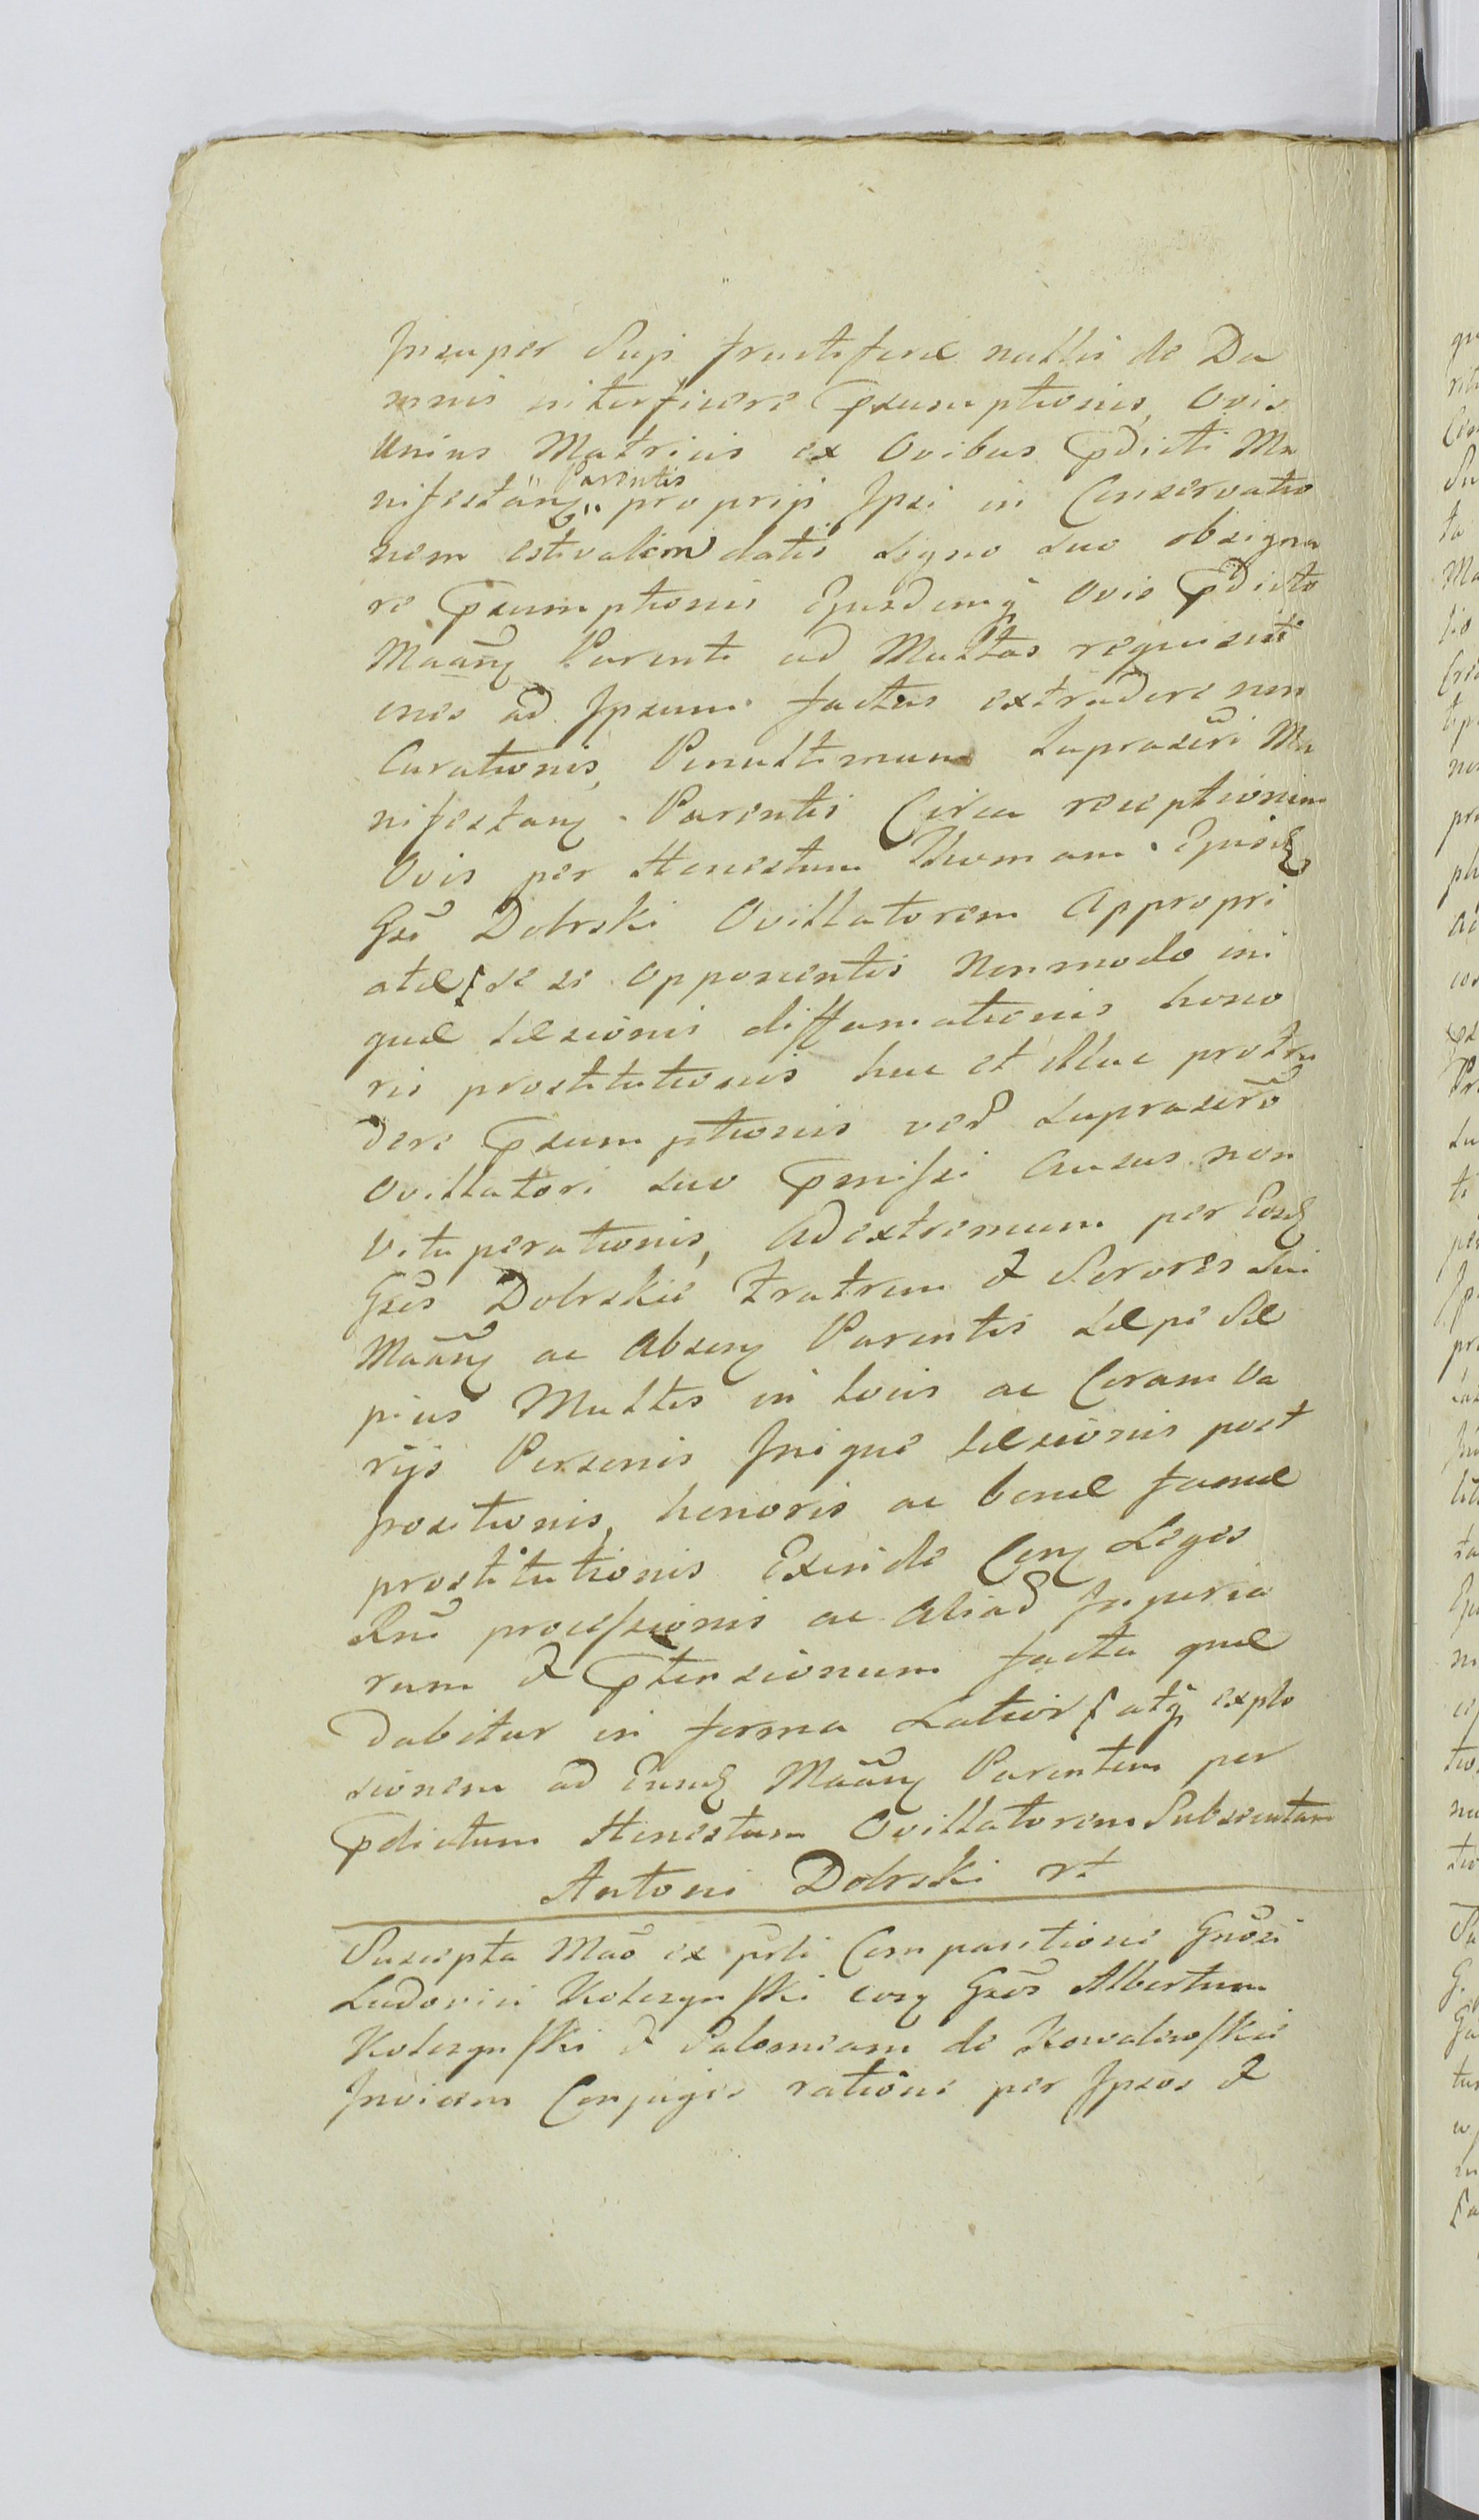 Insuper Suji fructiferæ nullis de Da
mnis interficere Pæsumptionis, Ovis
unius Matricis ex Ovibus Pdicti Ma
nifestanŋ Parentis proprijs Ipsi in Conservatio
nem estivalem datis signo suo obsigna
re Psumptionis Ejusdemq Ovis Pdicto
Maãnŋ Parenti ad Multas requisiti
ones ad Ipsum factas extradere non
Curationis, Penultimum Suprascri Ma
nifestanŋ Parentis Circa receptionem
Ovis per Honestum Thomam Ejusd
Gsi Dobrski Ovillatorem Appropri
atæ se se opponentis Nonmodo ini
quæ læsionis diffamationis hono
ris prostitutionis huc et illuc protru
dere Psumptionis ved suprascro
Ovillatori suo Pmissi ausus non
Vituperationis, Ad extremum per Eosd
Gsos Dobrskie Fratrem & Sorores Sui
Maãnŋ ac Absenŋ Parentis Sæpe Sæ
pius Multis in Locis ac Coram Va
rijs Personis Inique læsionis post
positionis, honoris ac bonæ famæ
prostitutionis Exinde Conŋ Leges
Rni processionis ac aliad Injuria
rum & Ptensionum facta quæ
Dabitur in forma Latiori atq explo
sionem ad Eund Maãnŋ Parentem per
Pdictum Honestum Ovillatorem Subsecutam
Antoni Dobrski rt
Suscepta Mão ex psti Comparitione Gnosi
Ludovici Kolczynski conŋ Gsos Albertum
Kolczynski & Salomeam de Kowalewskie
Invicem Conjuges ratione per Ipsos &